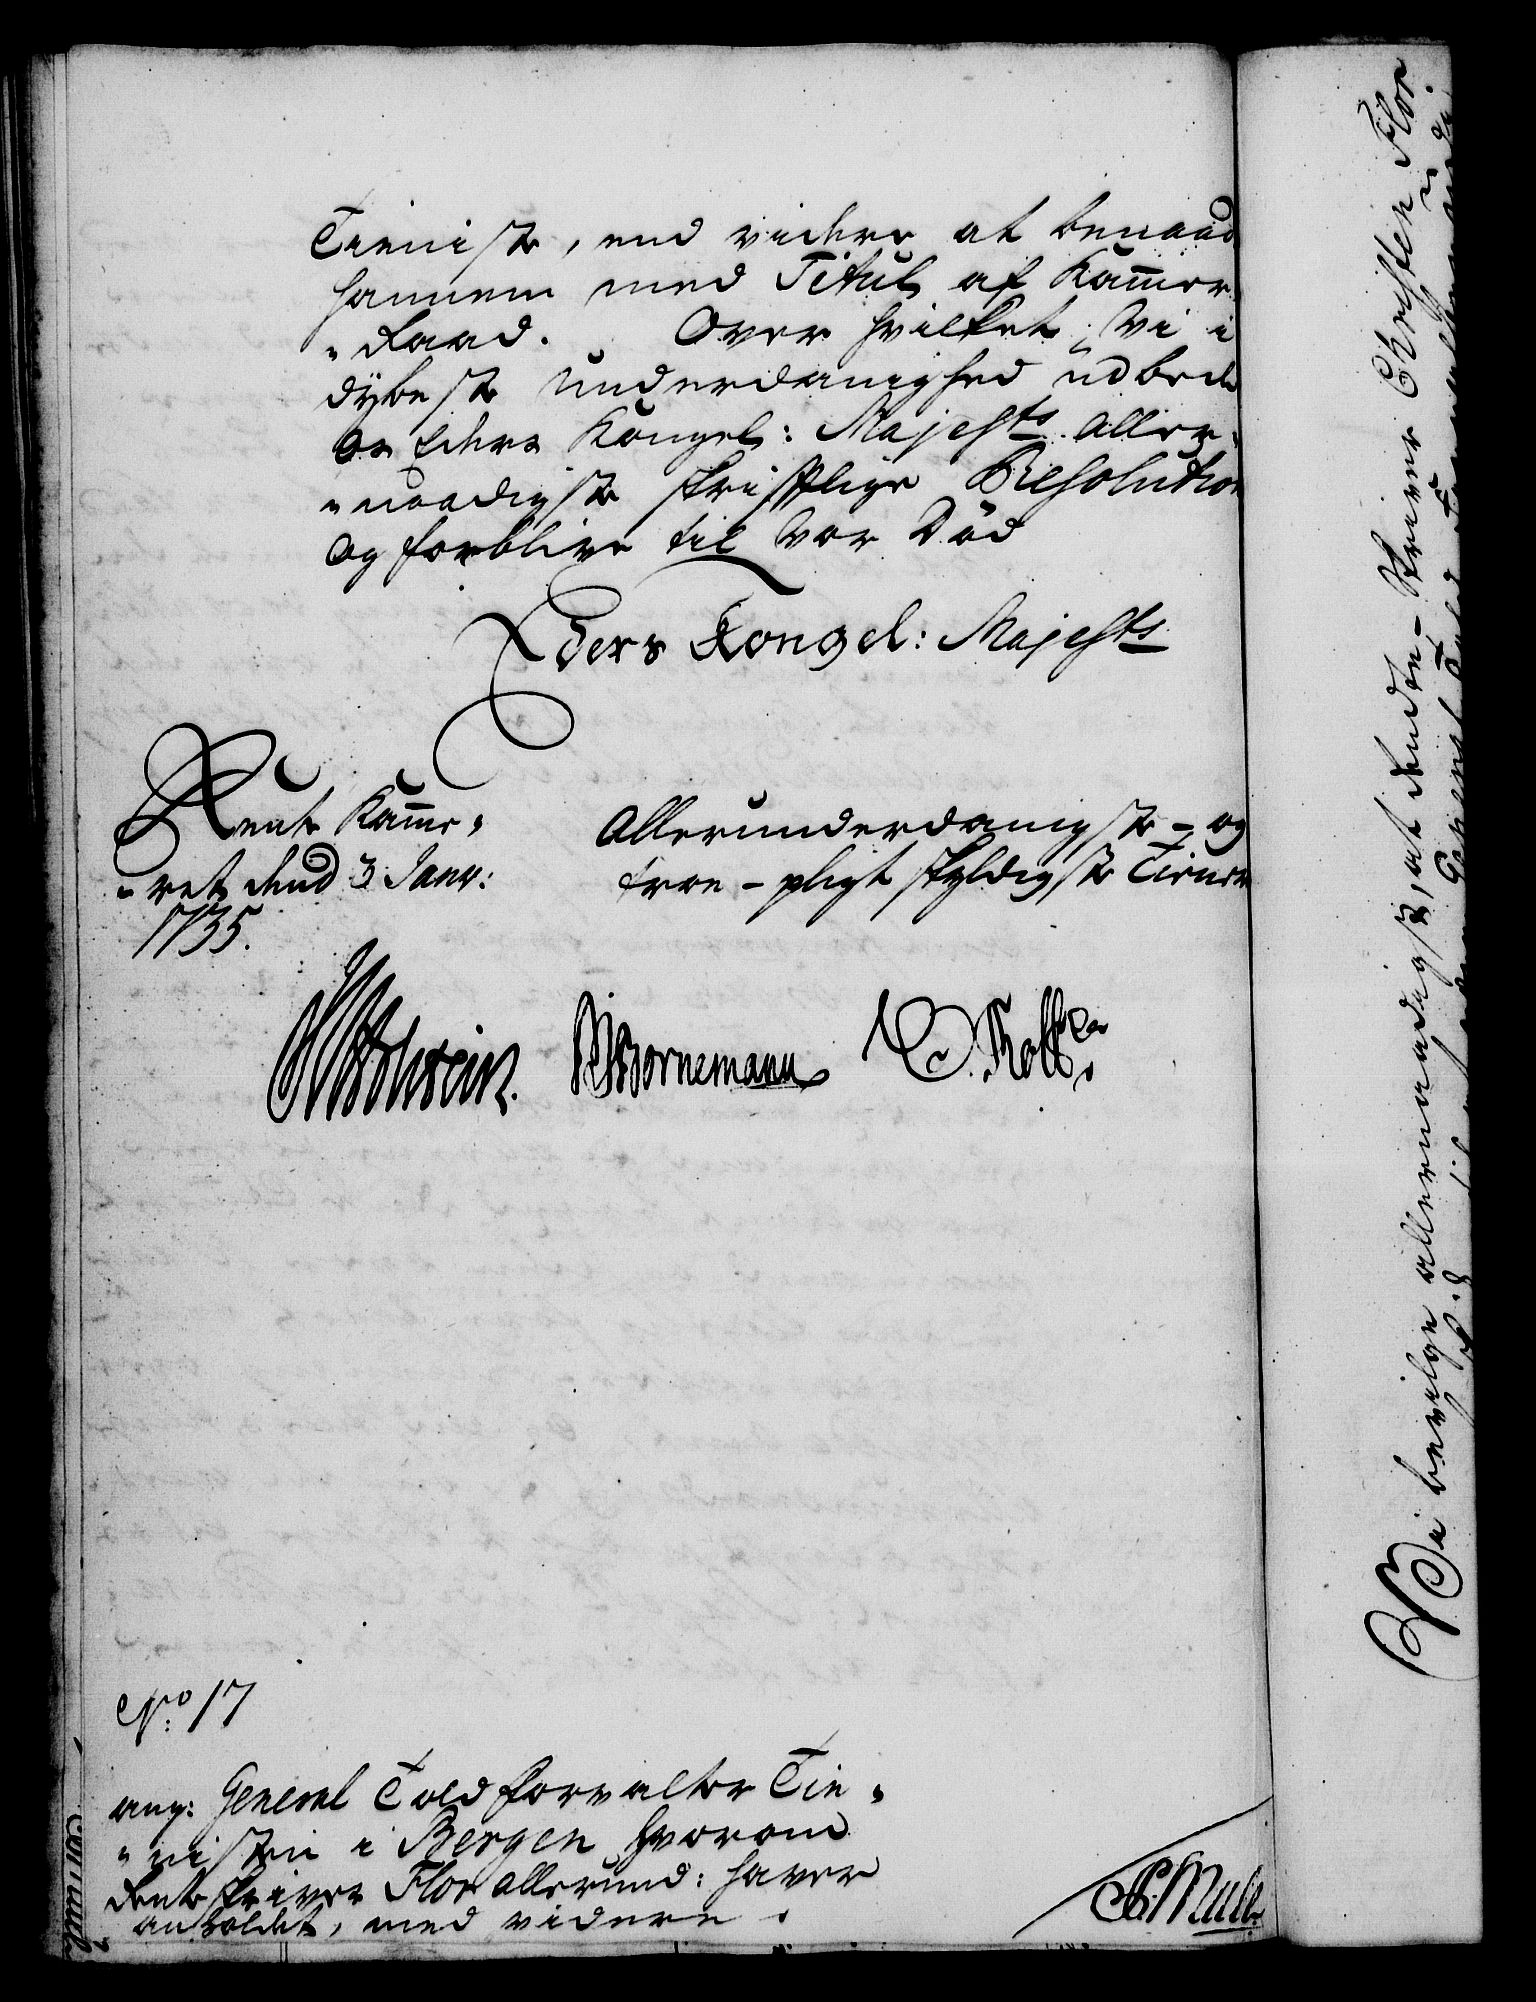 Tieniste, end videre at benaad
hannem med Titul af Kammer
"Raad. Over hvilket Vi i
dybeste underdanighed udbede
os Eders Kongel: Majests aller-
"naadigste skrifftlige Resolution
og forblive til Vor Död
Eders Kongel: Majests
Rente Kamme-
"ret dend 3 Janv:
1735.
Allerunderdanigste - og
troe - pligt skyldigste Tienere
Bornemann
No 17
ang: General Toldforvalter Tie-
"nisten i Bergen hvorom
Renteskriver Flor allerund: haver
anholdet, med videre.
Vi bevilge allernaadigst, at Rente-Skriver Christen Flor